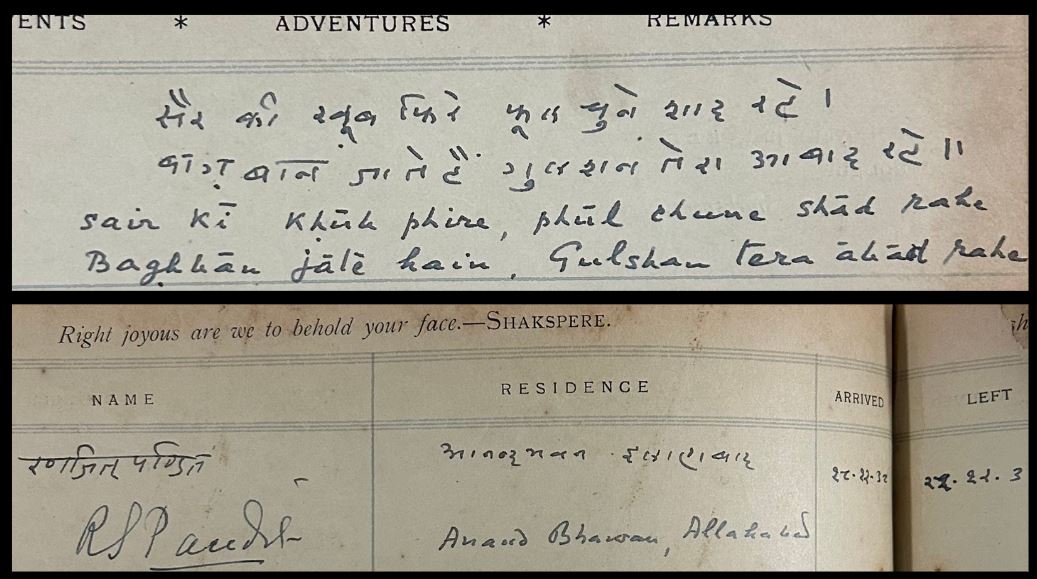 ENTS * ADVENTURES * REMARKS
सैर की ख़ूब फिरे फूल चुने शाद रहे ।
बाग़बान जाते हैं गुलशन तेरा आबाद रहे ॥
sair kī khūb phire, phūl chune shād rahe
Baghbān jātē hain, Gulshan tera ābād rahe
Right joyous are we to behold your face.—SHAKSPERE.
NAME RESIDENCE ARRIVED LEFT
रणजित् पण्डित आनन्द भवन इलाहाबाद
R S Pandit Anand Bhawan, Allahabad